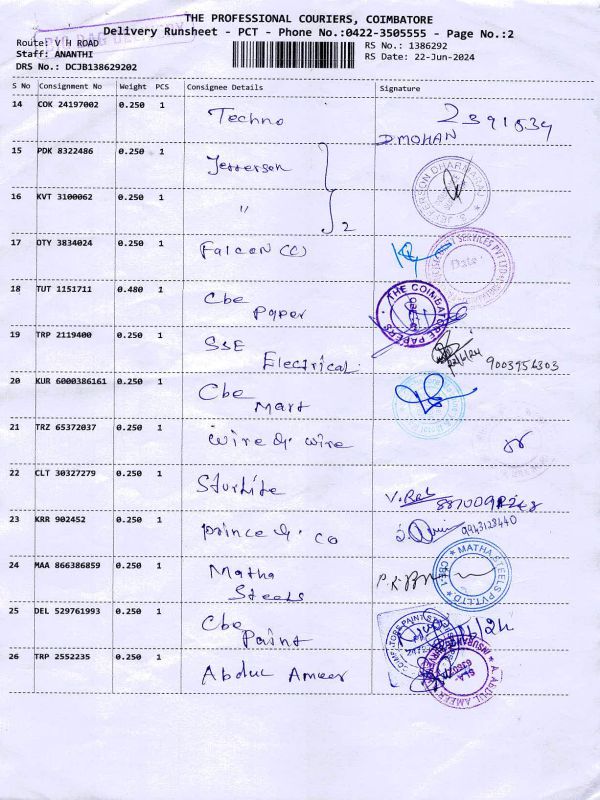 THE PROFESSIONAL COURIERS, COIMBATORE
Delivery Runsheet - PCT - Phone No.:0422-3505555 - Page No.:2
Route: V H ROAD
Staff: ANANTHI
DRS No.: DCJB138629202
RS No.: 1386292
RS Date: 22-Jun-2024
S No Consignment No Weight PCS Consignee Details Signature
14 COK 24197002 0.250 1 Techno 2391534
D.MOHAN
15 PDK 8322486 0.250 1 Jefferson
16 KVT 3100062 0.250 1 " 2
17 OTY 3834024 0.250 1 Falcon (C)
Date:
18 TUT 1151711 0.480 1 Cbe Paper
THE COIMBATORE PAPERS
19 TRP 2119400 0.250 1 SSE Electrical
22/6/24 9003956303
20 KUR 6000386161 0.250 1 Cbe Mart
21 TRZ 65372037 0.250 1 Wire & Wire
22 CLT 30327279 0.250 1 Sturlite
23 KRR 902452 0.250 1 Prince & Co 9943128440
24 MAA 866386859 0.250 1 Matha Steels
MATHA STEELS PVT.LTD CBE-1
25 DEL 529761993 0.250 1 Cbe Paint
26 TRP 2552235 0.250 1 Abdul Ameer
A. ABDUL AMEER